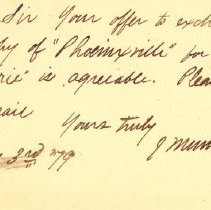 Sir Your offer to exch
of "Phoenixville" for
is agreeable. Plea
Yours truly
J Mum
3rd